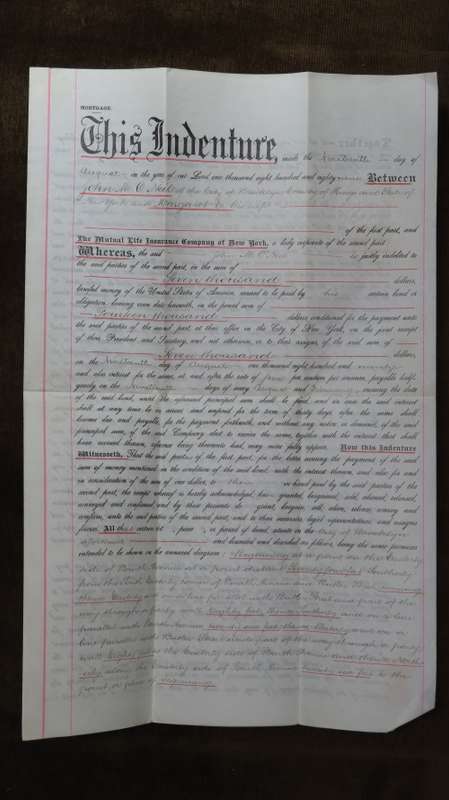 MORTGAGE.
This Indenture, made the Nineteenth day of
August in the year of our Lord one thousand eight hundred and eighty nine Between
John M. O'Neil of the City of Brooklyn County of Kings and State of
New York and Margaret his wife
of the first part, and
The Mutual Life Insurance Company of New York, a body corporate of the second part
Whereas, the said John M. O'Neil is justly indebted to
the said parties of the second part, in the sum of
Seven thousand dollars,
lawful money of the United States of America, secured to be paid by his certain bond or
obligation, bearing even date herewith, in the penal sum of
Fourteen thousand dollars conditioned for the payment unto
the said parties of the second part, at their office in the City of New York, on the joint receipt
of their President and Secretary, and not otherwise, or to their assigns, of the said sum of
Seven thousand dollars,
on the Nineteenth day of August one thousand eight hundred and ninety
and also interest for the same, at, and after the rate of five per centum per annum, payable half-
yearly on the Nineteenth days of every August and ensuing the date
of the said bond, until the aforesaid principal sum shall be paid, and in case the said interest
shall at any time be in arrear and unpaid for the term of thirty days after the same shall
become due and payable, for the payment forthwith, and without any notice or demand, of the said
principal sum, if the said Company elect to receive the same, together with the interest that shall
have accrued thereon, reference being thereunto had, may more fully appear. Now this Indenture
Witnesseth, That the said parties of the first part, for the better securing the payment of the said
sum of money mentioned in the condition of the said bond, with the interest thereon, and also for and
in consideration of the sum of one dollar, to them in hand paid by the said parties of the
second part, the receipt whereof is hereby acknowledged, have granted, bargained, sold, aliened, released,
conveyed and confirmed, and by these presents do grant, bargain, sell, alien, release, convey and
confirm, unto the said parties of the second part, and to their successors, legal representatives, and assigns
forever, All that certain lot, piece, or parcel of land, situate in the City of Brooklyn
aforesaid and bounded and described as follows, being the same premises
intended to be shown in the annexed diagram: Beginning at a point on the Easterly
side of Sixth Avenue at a point distant Southerly
from the corner of Sixth Avenue and Butler Street running
thence Easterly on a line parallel with Butler Street and part of the
way through a party wall Eighty feet thence Southerly and on a line
parallel with Sixth Avenue thence Westerly and on a
line parallel with Butler Street and part of the way through a party
wall Eighty feet to the Easterly side of Sixth Avenue and thence North
erly along the Easterly side of Sixth Avenue feet to the
point or place of beginning